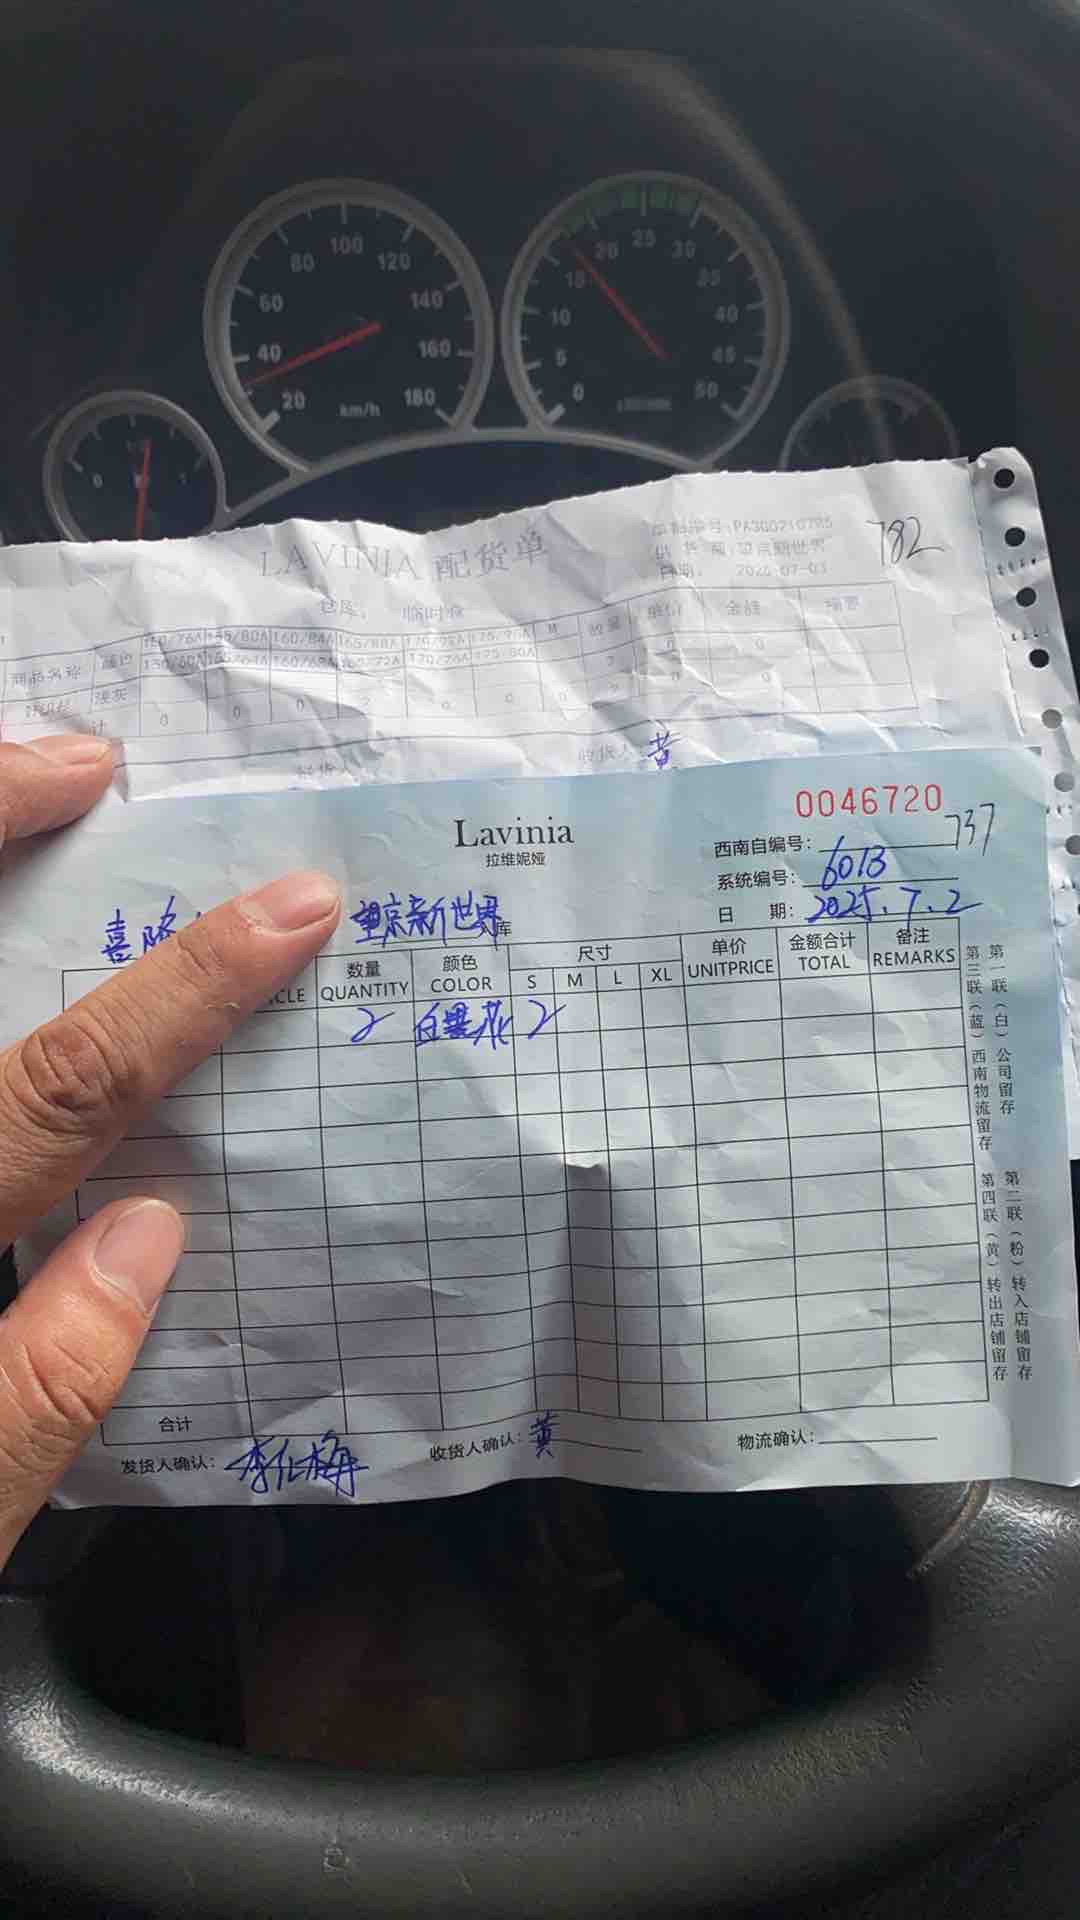 80 100 120
60 140
40 160
20 km/h 180
15 20 25 30 35
10 40
5 45
0 50
0 1
LAVINIA 配货单
782
日期: 2025-07-03
仓库: 临时仓
商品名称 颜色 数量 单价 金额
150/76A 155/80A 160/84A 165/88A 170/92A 175/96A M
浅灰
0 0 0 2 0 0 0 2 0
收货人: 黄
0046720
Lavinia
拉维妮娅
西南自编号: 737
系统编号: 6013
日 期: 2025.7.2
喜隆
望京新世界
库
CLE 数量 QUANTITY 颜色 COLOR 尺寸 S M L XL 单价 UNITPRICE 金额合计 TOTAL 备注 REMARKS
2 白墨花 2
合计
发货人确认: 李仁梅 收货人确认: 黄 物流确认:
第一联(白)公司留存
第二联(粉)转入店铺留存
第三联(蓝)西南物流留存
第四联(黄)转出店铺留存